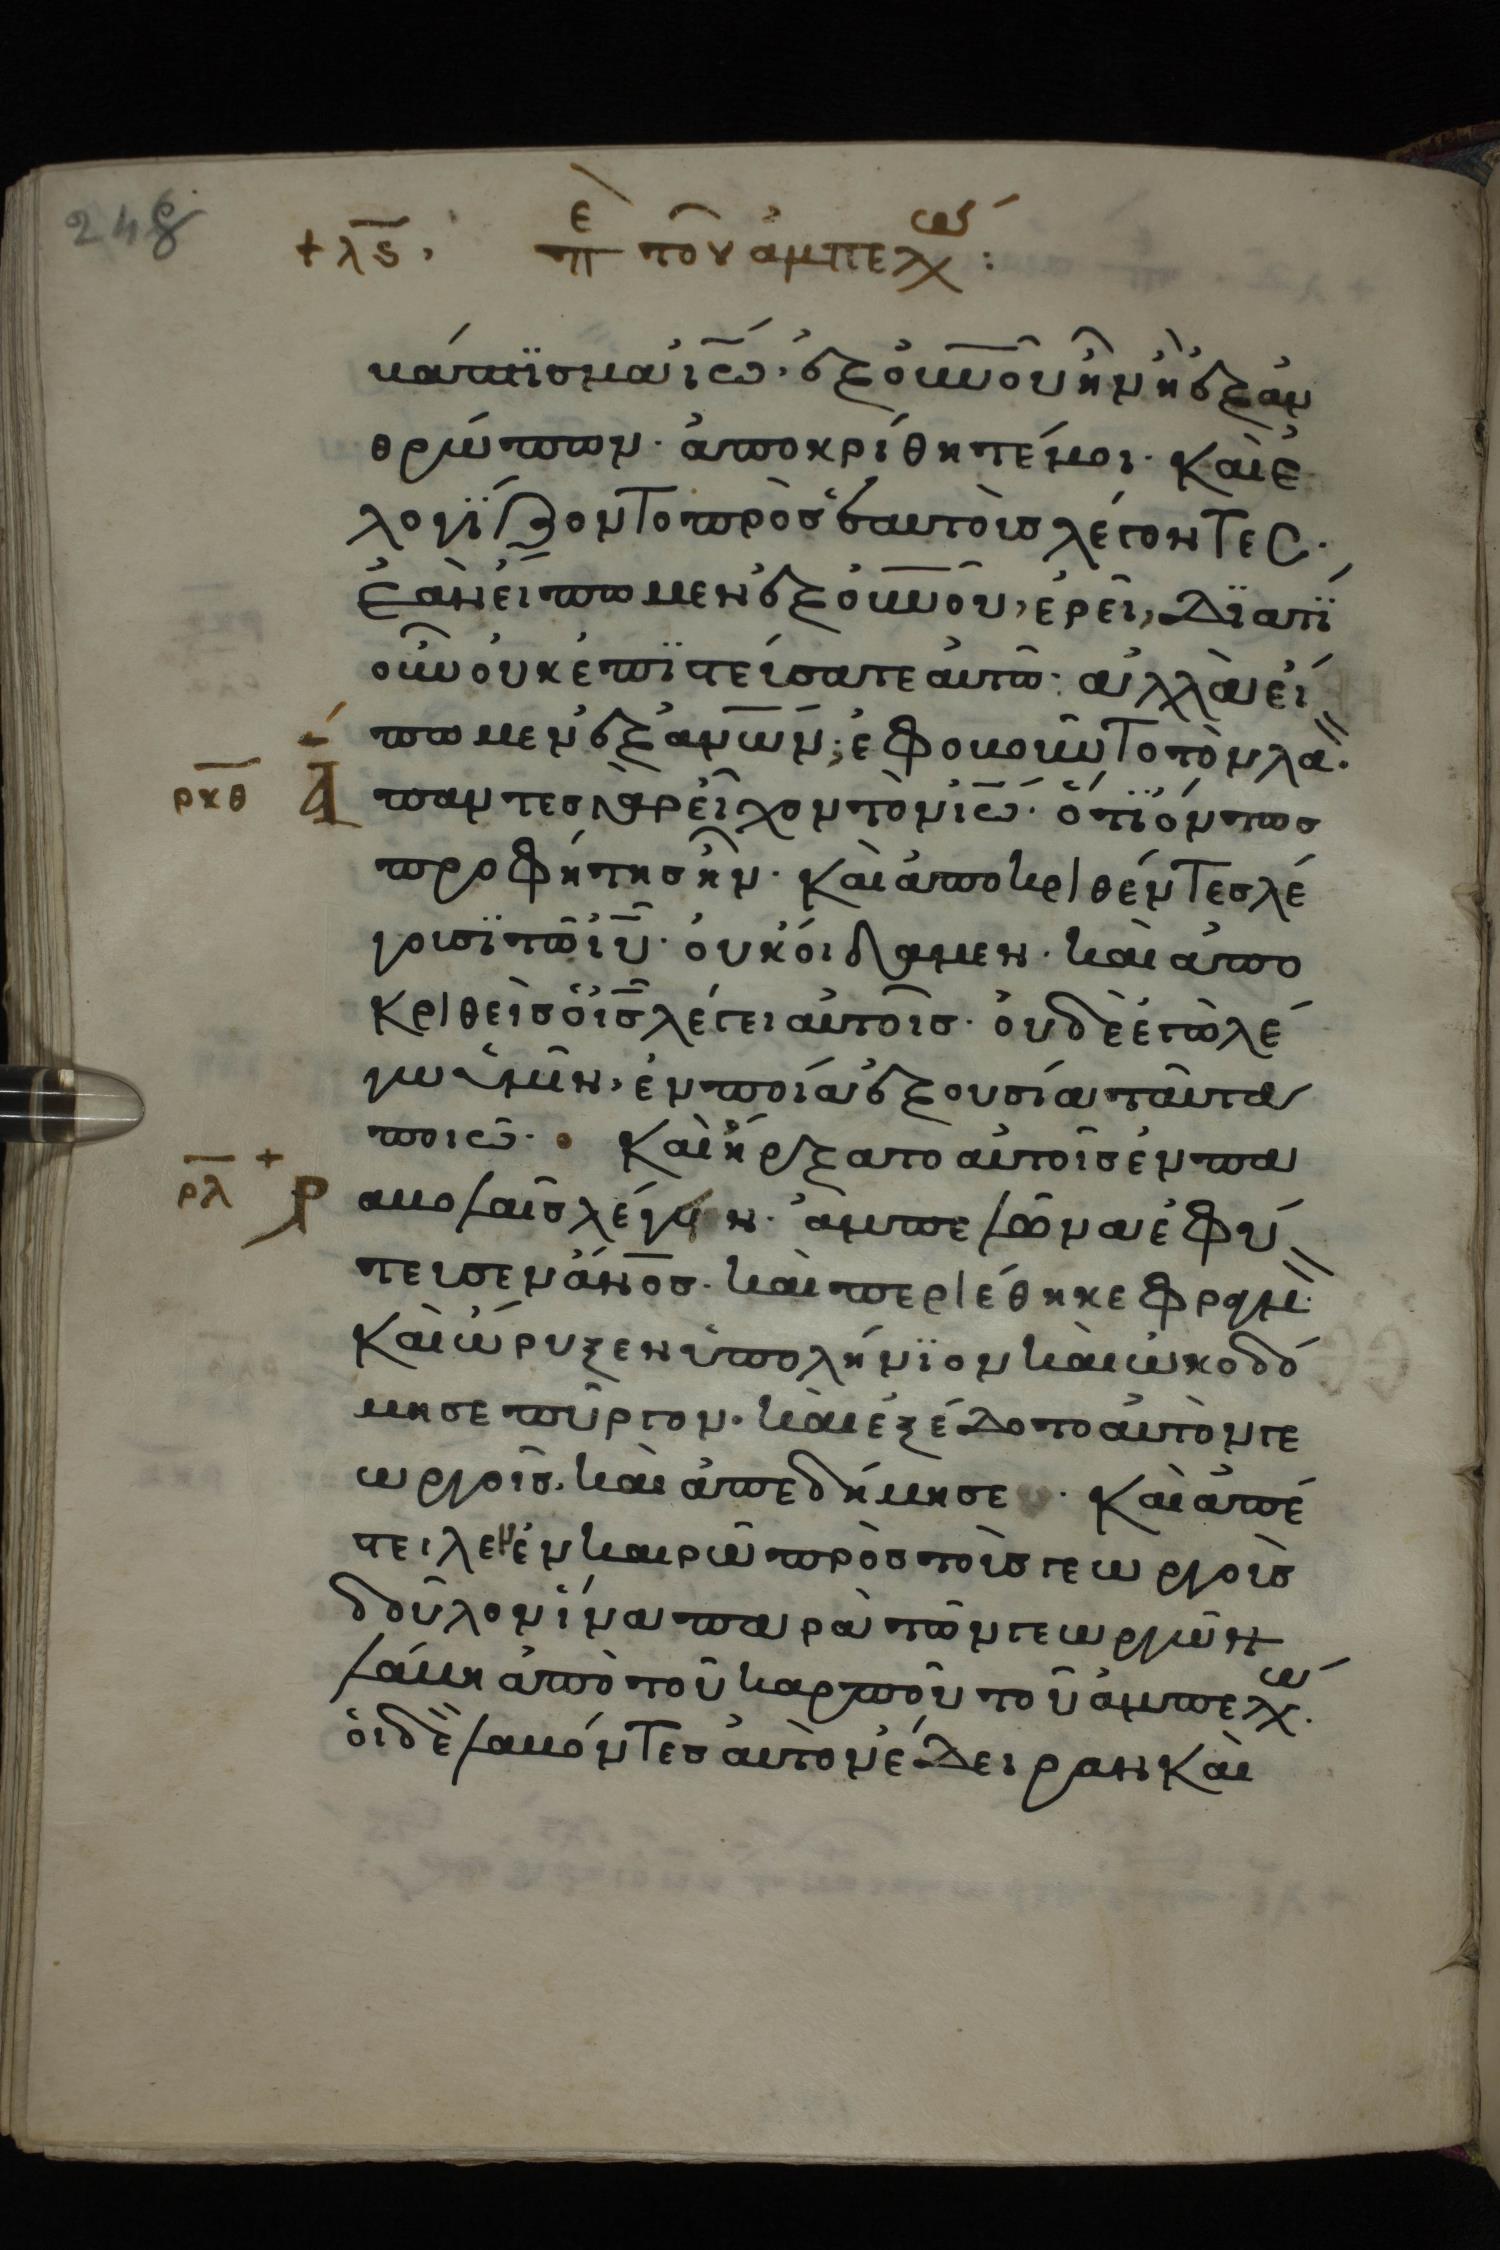 248
+ λς, πε τοῦ ἀμπελῶ:
κάπτϊσμα ἰω̅. ἐξ ὀυ̅νο̅υ ἦν ἢ ἐξ ἀν
θρώπων. ἀποκρίθητέ μοι. καὶ ἐ
λογίζοντο πρὸς ἑαυτοὺς λέγοντες.
ἐὰν εἴπωμεν ἐξ ὀυ̅νο̅υ, ἐρεῖ, Διατί
οὖν οὐκ ἐπιστεύσατε αὐτῶ; ἀλλὰ εἴ
πωμεν ἐξ ἀν̅ω̅ν; ἐφοβοῦντο τὸν λα.
ρκθ ἅ
παντες γὰρ εἶχον τὸν ἰω̅. ὅτι ὄντως
προφήτης ἦν. καὶ ἀποκριθέντες λέ
γουσϊ τῶ ἰυ̅. οὐκ οἴδαμεν. καὶ ἀπο
κριθεὶς ὁ ἰς̅ λέγει αὐτοῖς. οὐδὲ ἐγὼ λέ
γω ὑμῖν, ἐν ποία ἐξουσία ταῦτα
ποιῶ. καὶ ἤρξατο αὐτοῖς ἐν πα
ρλ + ρ
αβολαῖς λέγειν. ἀμπελῶνα ἐφύ
τευσεν ἄν̅ος. καὶ περιέθηκε φραμ.
καὶ ὤρυξεν ὑπολήνϊον καὶ ὠκοδό
μησε πῦργον. καὶ ἐξέδοτο αὐτὸν γε
ωργοῖς. καὶ ἀπεδήμησε. καὶ ἀπέ
στειλεν ἐν καιρῶ πρὸς τοὺς γεωργοὺς
δοῦλον ἵνα παρὰ τῶν γεωργῶν
λάβη ἀπὸ τοῦ καρποῦ τοῦ ἀμπελῶ.
οἱ δὲ λαβόντες αὐτὸν ἔδειραν καὶ